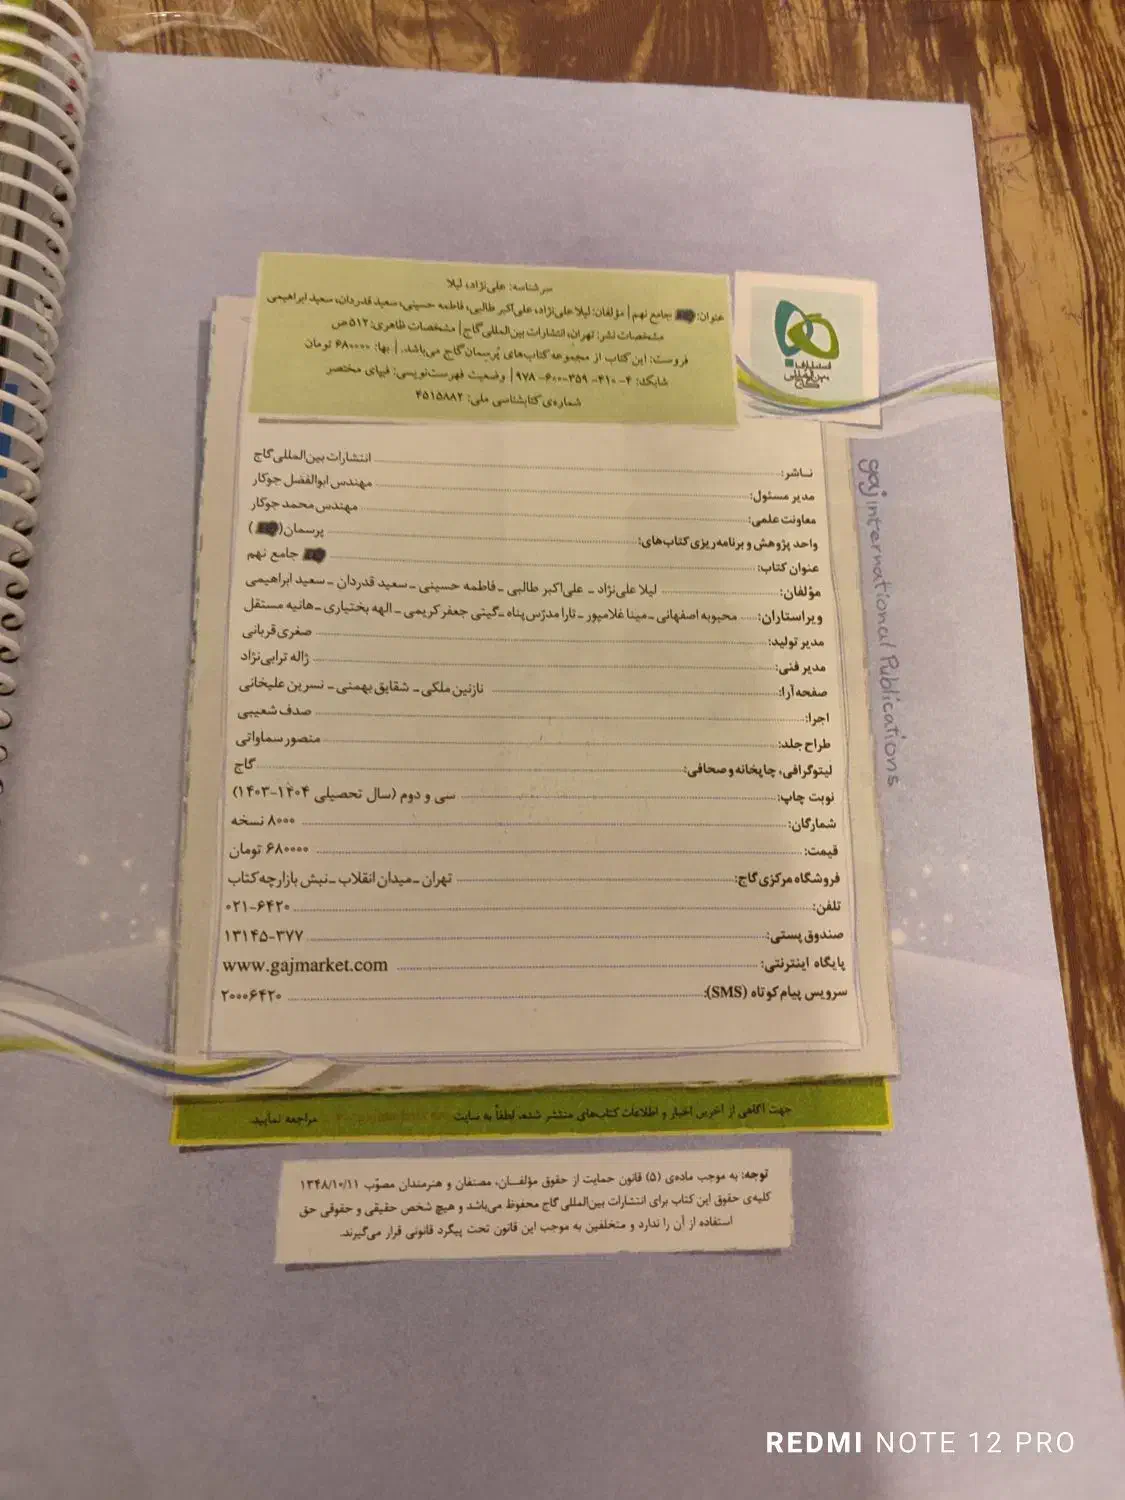 سرشناسه: علی‌نژاد، لیلا
عنوان: جامع نهم | مؤلفان: لیلا علی‌نژاد، علی‌اکبر طالبی، فاطمه حسینی، سعید قدردان، سعید ابراهیمی
مشخصات نشر: تهران، انتشارات بین‌المللی گاج | مشخصات ظاهری: ۵۱۲ ص
فروست: این کتاب از مجموعه کتاب‌های پُرسمان گاج می‌باشد. | بها: ۶۸۰۰۰۰ تومان
شابک: ۴-۴۱۰-۳۵۹-۶۰۰-۹۷۸ | وضعیت فهرست‌نویسی: فیپای مختصر
شماره‌ی کتابشناسی ملی: ۴۵۱۵۸۸۲
انتشارات
بین‌المللی
گاج
gaj international Publications
ناشر: انتشارات بین‌المللی گاج
مدیر مسئول: مهندس ابوالفضل جوکار
معاونت علمی: مهندس محمد جوکار
واحد پژوهش و برنامه‌ریزی کتاب‌های: پرسمان ( )
عنوان کتاب: جامع نهم
مؤلفان: لیلا علی‌نژاد ـ علی‌اکبر طالبی ـ فاطمه حسینی ـ سعید قدردان ـ سعید ابراهیمی
ویراستاران: محبوبه اصفهانی ـ مینا غلامپور ـ تارا مدرّس‌پناه ـ گیتی جعفر کریمی ـ الهه بختیاری ـ هانیه مستقل
مدیر تولید: صغری قربانی
مدیر فنی: ژاله ترابی‌نژاد
صفحه‌آرا: نازنین ملکی ـ شقایق بهمنی ـ نسرین علیخانی
اجرا: صدف شعیبی
طراح جلد: منصور سماواتی
لیتوگرافی، چاپخانه و صحافی: گاج
نوبت چاپ: سی و دوم (سال تحصیلی ۱۴۰۴-۱۴۰۳)
شمارگان: ۸۰۰۰ نسخه
قیمت: ۶۸۰۰۰۰ تومان
فروشگاه مرکزی گاج: تهران ـ میدان انقلاب ـ نبش بازارچه کتاب
تلفن: ۰۲۱-۶۴۲۰
صندوق پستی: ۱۳۱۴۵-۳۷۷
پایگاه اینترنتی: www.gajmarket.com
سرویس پیام کوتاه (SMS): ۲۰۰۰۶۴۲۰
جهت آگاهی از آخرین اخبار و اطلاعات کتاب‌های منتشر شده، لطفاً به سایت مراجعه نمایید.
توجه: به موجب ماده‌ی (۵) قانون حمایت از حقوق مؤلفــان، مصنفان و هنرمندان مصوّب ۱۳۴۸/۱۰/۱۱
کلیه‌ی حقوق این کتاب برای انتشارات بین‌المللی گاج محفوظ می‌باشد و هیچ شخص حقیقی و حقوقی حق
استفاده از آن را ندارد و متخلفین به موجب این قانون تحت پیگرد قانونی قرار می‌گیرند.
REDMI NOTE 12 PRO